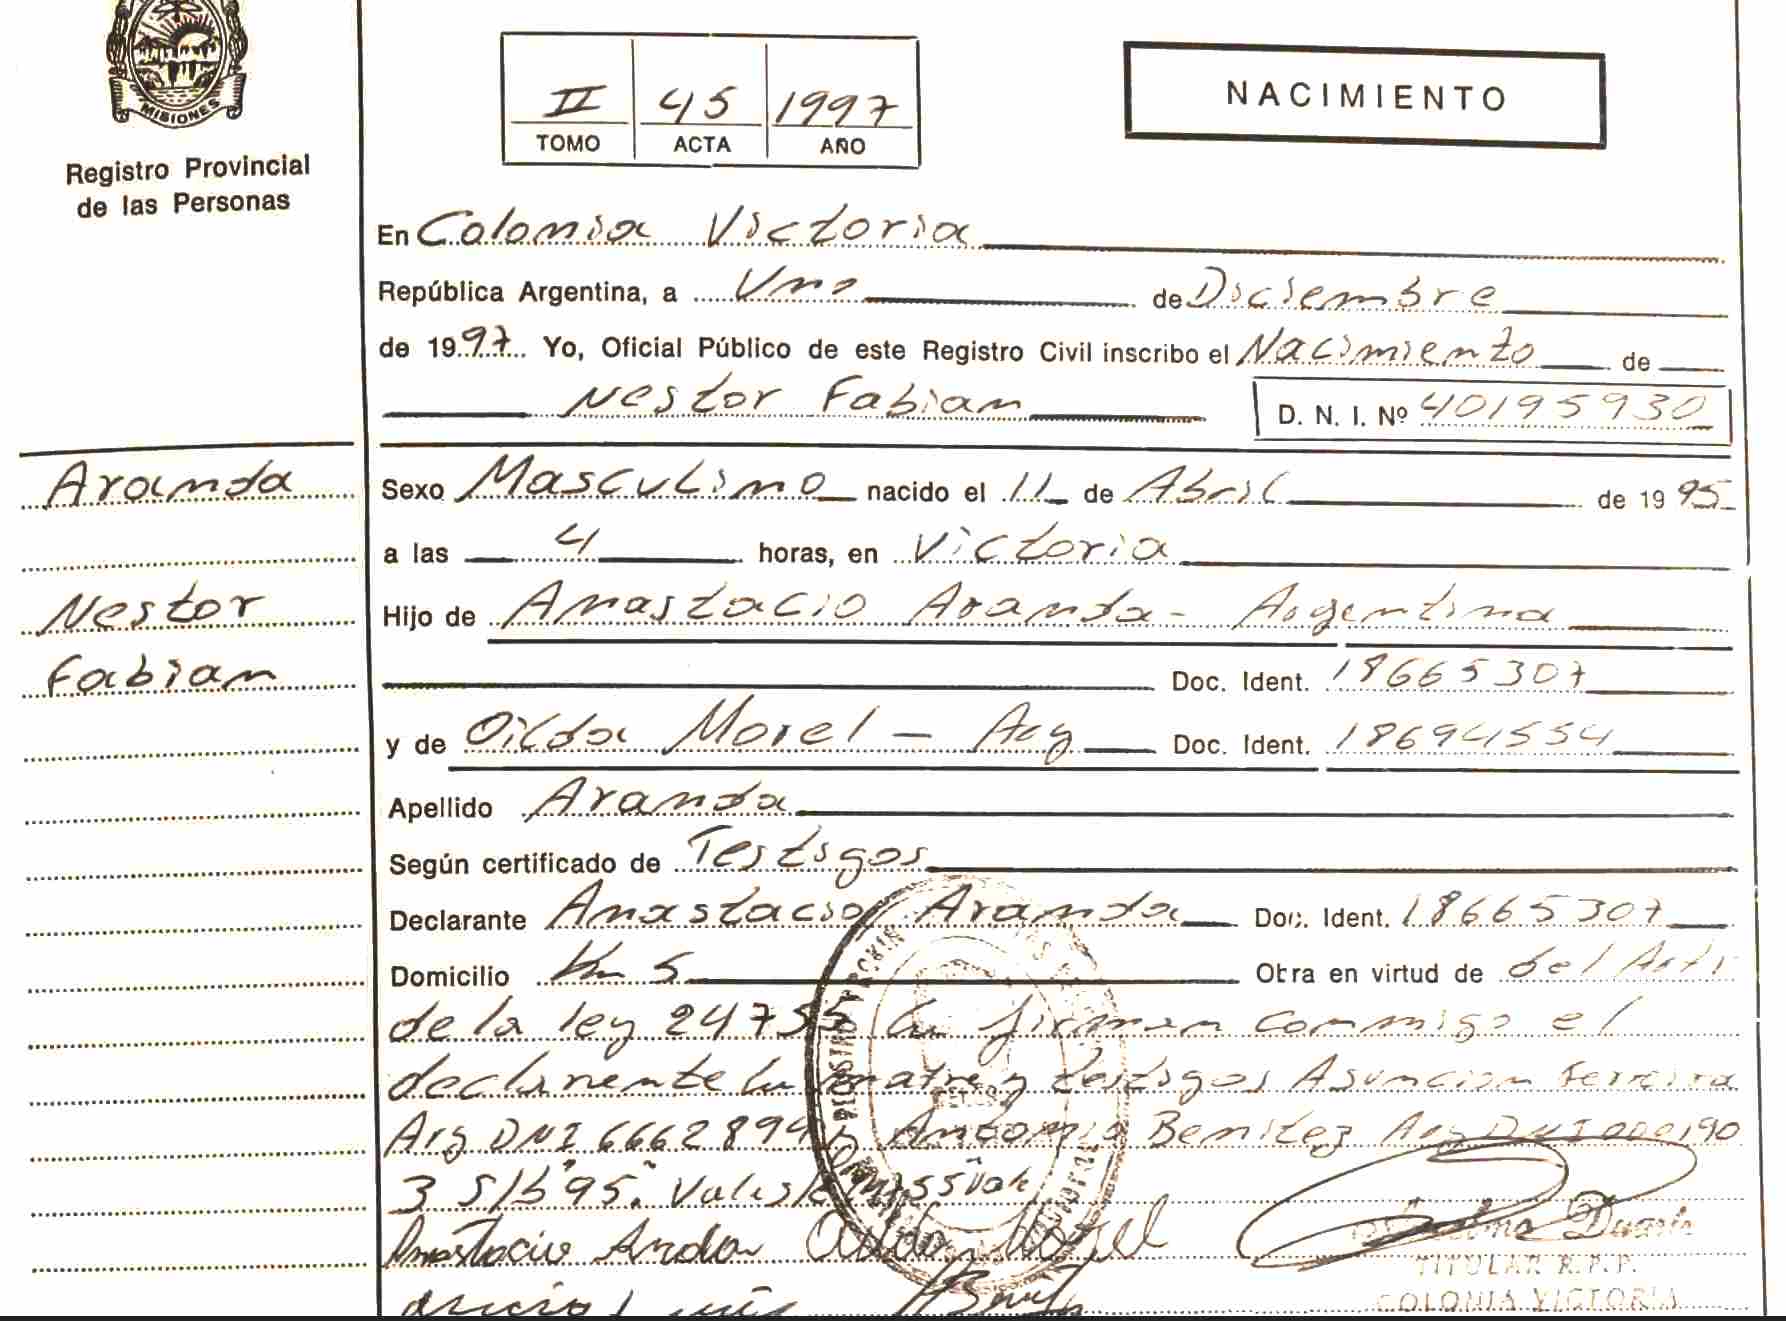 MISIONES
Registro Provincial
de las Personas
II 45 1997
TOMO ACTA AÑO
NACIMIENTO
En Colonia Victoria
República Argentina, a Uno de Diciembre
de 1997 Yo, Oficial Público de este Registro Civil inscribo el Nacimiento de
Nestor Fabian D. N. I. Nº 40195930
Aranda
Nestor
Fabian
Sexo Masculino nacido el 11 de Abril de 1995
a las 4 horas, en Victoria
Hijo de Anastacio Aranda - Argentina
Doc. Ident. 18665307
y de Oilda Morel - Arg Doc. Ident. 18694554
Apellido Aranda
Según certificado de Testigos
Declarante Anastacio Aranda Doc. Ident. 18665307
Domicilio Km 5 Otra en virtud de del Art 1
de la ley 24755 La firman conmigo el
declarante la madre y testigos Asuncion Ferreira
Arg DNI 6662894 y Antonio Benitez Arg DNI
3 S/b "95"
Anastacio Aranda Oilda Morel
Duarte
TITULAR R.P.P.
COLONIA VICTORIA